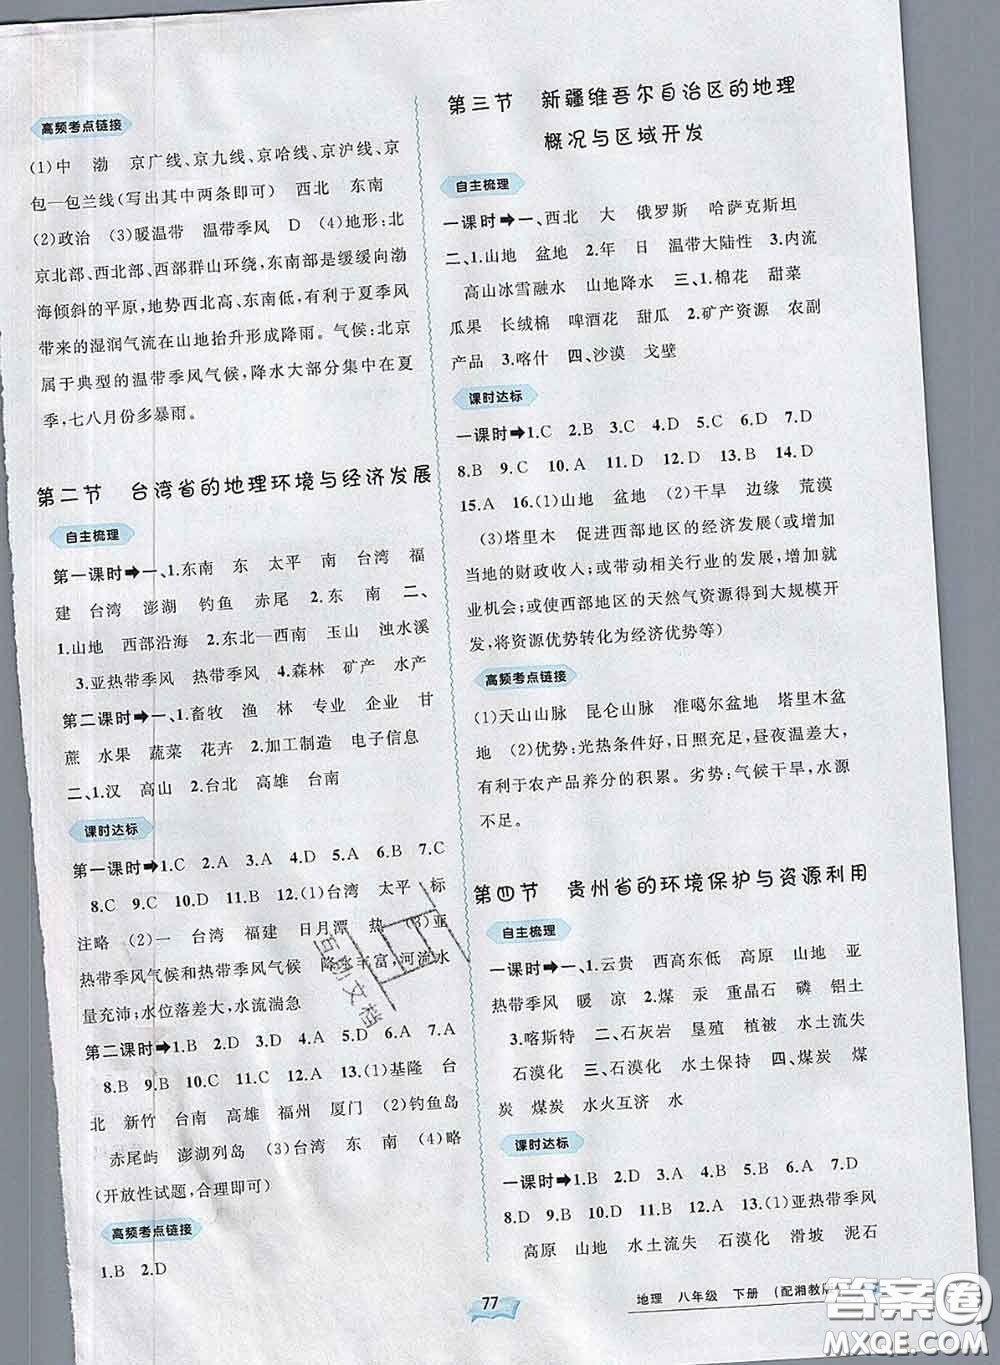 高频考点链接
(1)中　渤　京广线、京九线、京哈线、京沪线、京
包—包兰线(写出其中两条即可)　西北　东南
(2)政治　(3)暖温带　温带季风　D　(4)地形:北
京北部、西北部、西部群山环绕,东南部是缓缓向渤
海倾斜的平原,地势西北高、东南低,有利于夏季风
带来的湿润气流在山地抬升形成降雨。气候:北京
属于典型的温带季风气候,降水大部分集中在夏
季,七八月份多暴雨。
第二节　台湾省的地理环境与经济发展
自主梳理
第一课时➔一、1.东南　东　太平　南　台湾　福
建　台湾　澎湖　钓鱼　赤尾　2.东　南　二、
1.山地　西部沿海　2.东北—西南　玉山　浊水溪
3.亚热带季风　热带季风　4.森林　矿产　水产
第二课时➔一、1.畜牧　渔　林　专业　企业　甘
蔗　水果　蔬菜　花卉　2.加工制造　电子信息
二、1.汉　高山　2.台北　高雄　台南
课时达标
第一课时➔1.C　2.A　3.A　4.D　5.A　6.B　7.C
8.C　9.C　10.A　11.D　12.(1)台湾　太平　标
注略　(2)一　台湾　福建　日月潭　热　(3)亚
热带季风气候和热带季风气候　降水丰富,河流水
量充沛;水位落差大,水流湍急
第二课时➔1.B　2.D　3.D　4.D　5.D　6.A　7.A
8.B　9.B　10.C　11.B　12.A　13.(1)基隆　台
北　新竹　台南　高雄　福州　厦门　(2)钓鱼岛
赤尾屿　澎湖列岛　(3)台湾　东　南　(4)略
(开放性试题,合理即可)
高频考点链接
1.B　2.D
第三节　新疆维吾尔自治区的地理
概况与区域开发
自主梳理
一课时➔一、西北　大　俄罗斯　哈萨克斯坦
二、1.山地　盆地　2.年　日　温带大陆性　3.内流
高山冰雪融水　山地降水　三、1.棉花　甜菜
瓜果　长绒棉　啤酒花　甜瓜　2.矿产资源　农副
产品　3.喀什　四、沙漠　戈壁
课时达标
一课时➔1.C　2.B　3.C　4.D　5.D　6.D　7.D
8.B　9.C　10.A　11.D　12.D　13.B　14.D
15.A　16.(1)山地　盆地　(2)干旱　边缘　荒漠
(3)塔里木　促进西部地区的经济发展(或增加
当地的财政收入;或带动相关行业的发展,增加就
业机会;或使西部地区的天然气资源得到大规模开
发,将资源优势转化为经济优势等)
高频考点链接
(1)天山山脉　昆仑山脉　准噶尔盆地　塔里木盆
地　(2)优势:光热条件好,日照充足,昼夜温差大,
有利于农产品养分的积累。劣势:气候干旱,水源
不足。
第四节　贵州省的环境保护与资源利用
自主梳理
一课时➔一、1.云贵　西高东低　高原　山地　亚
热带季风　暖　凉　2.煤　汞　重晶石　磷　铝土
3.喀斯特　二、石灰岩　垦殖　植被　水土流失
石漠化　三、石漠化　水土保持　四、煤炭　煤
炭　煤炭　水火互济　水
课时达标
一课时➔1.B　2.D　3.A　4.B　5.C　6.A　7.D
8.D　9.B　10.D　11.A　12.D　13.(1)亚热带季风
高原　山地　水土流失　石漠化　滑坡　泥石
77
地理　八年级　下册　(配湘教版
答案圈
MXQE.COM